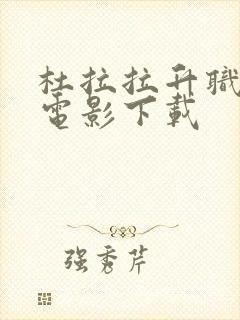 杜拉拉升職
電影下載
强秀芹